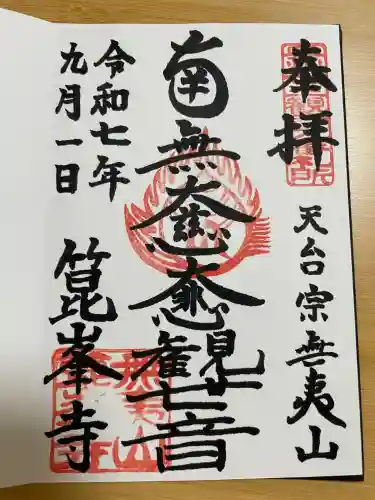 奉拝
天台宗無夷山
南無大慈大悲観世音
箆峯寺
令和七年
九月一日